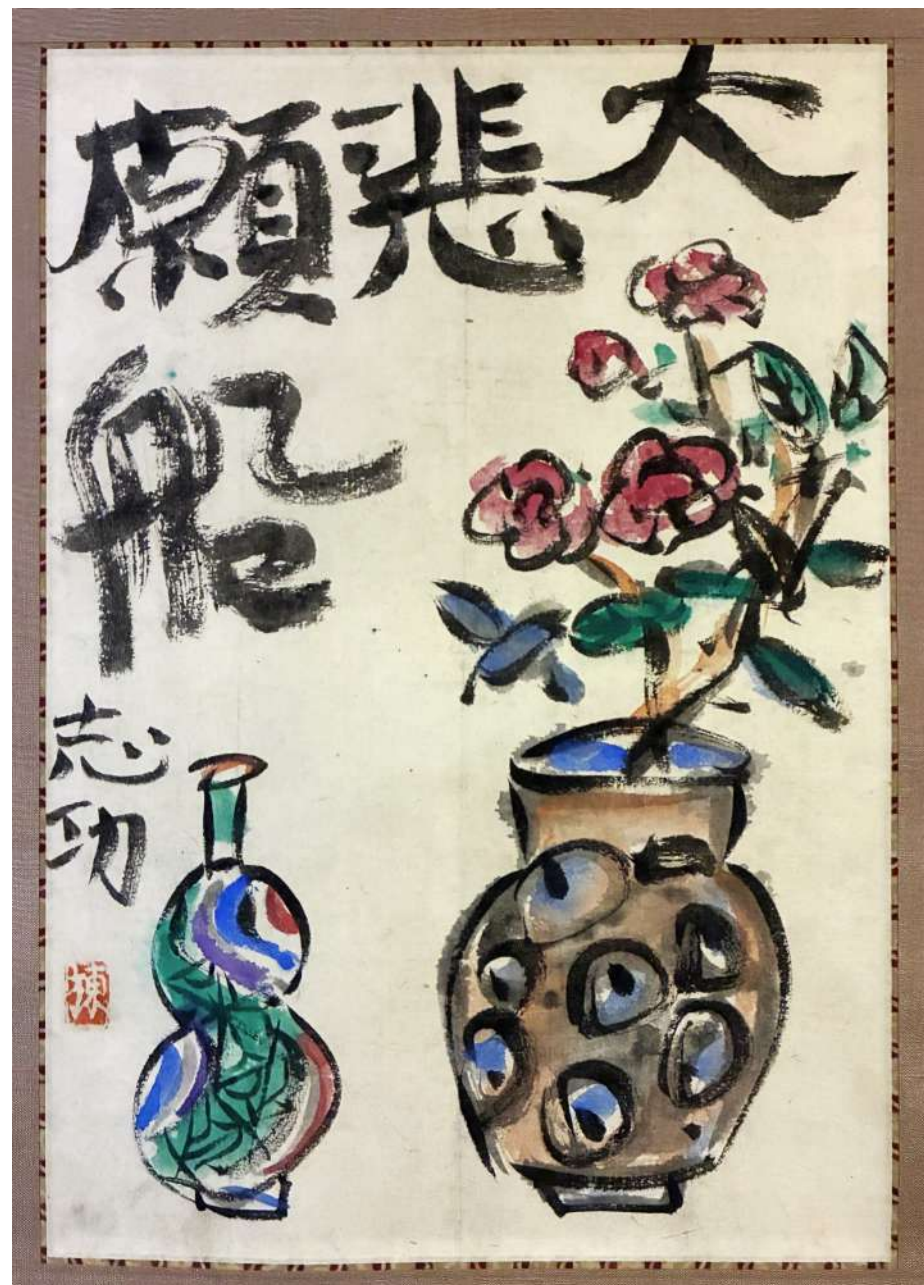 大悲願
船
志功
棟